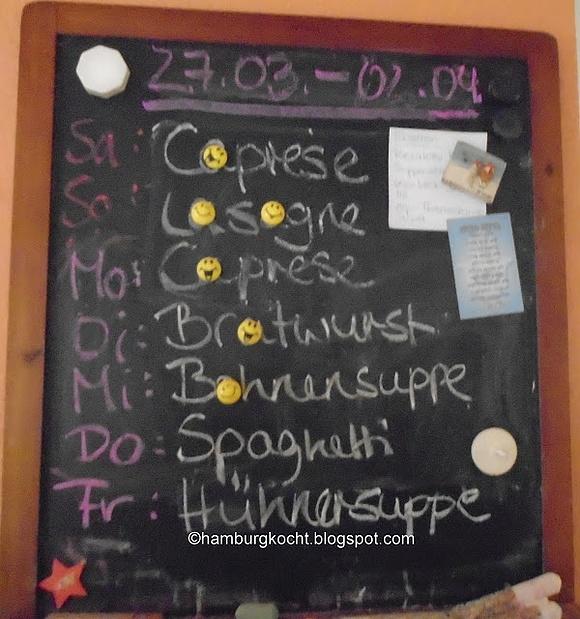 27.03. - 02.04
Sa: Caprese
So: Lasagne
Mo: Caprese
Di: Bratwurst
Mi: Bohnensuppe
Do: Spaghetti
Fr: Hühnersuppe
©hamburgkocht.blogspot.com